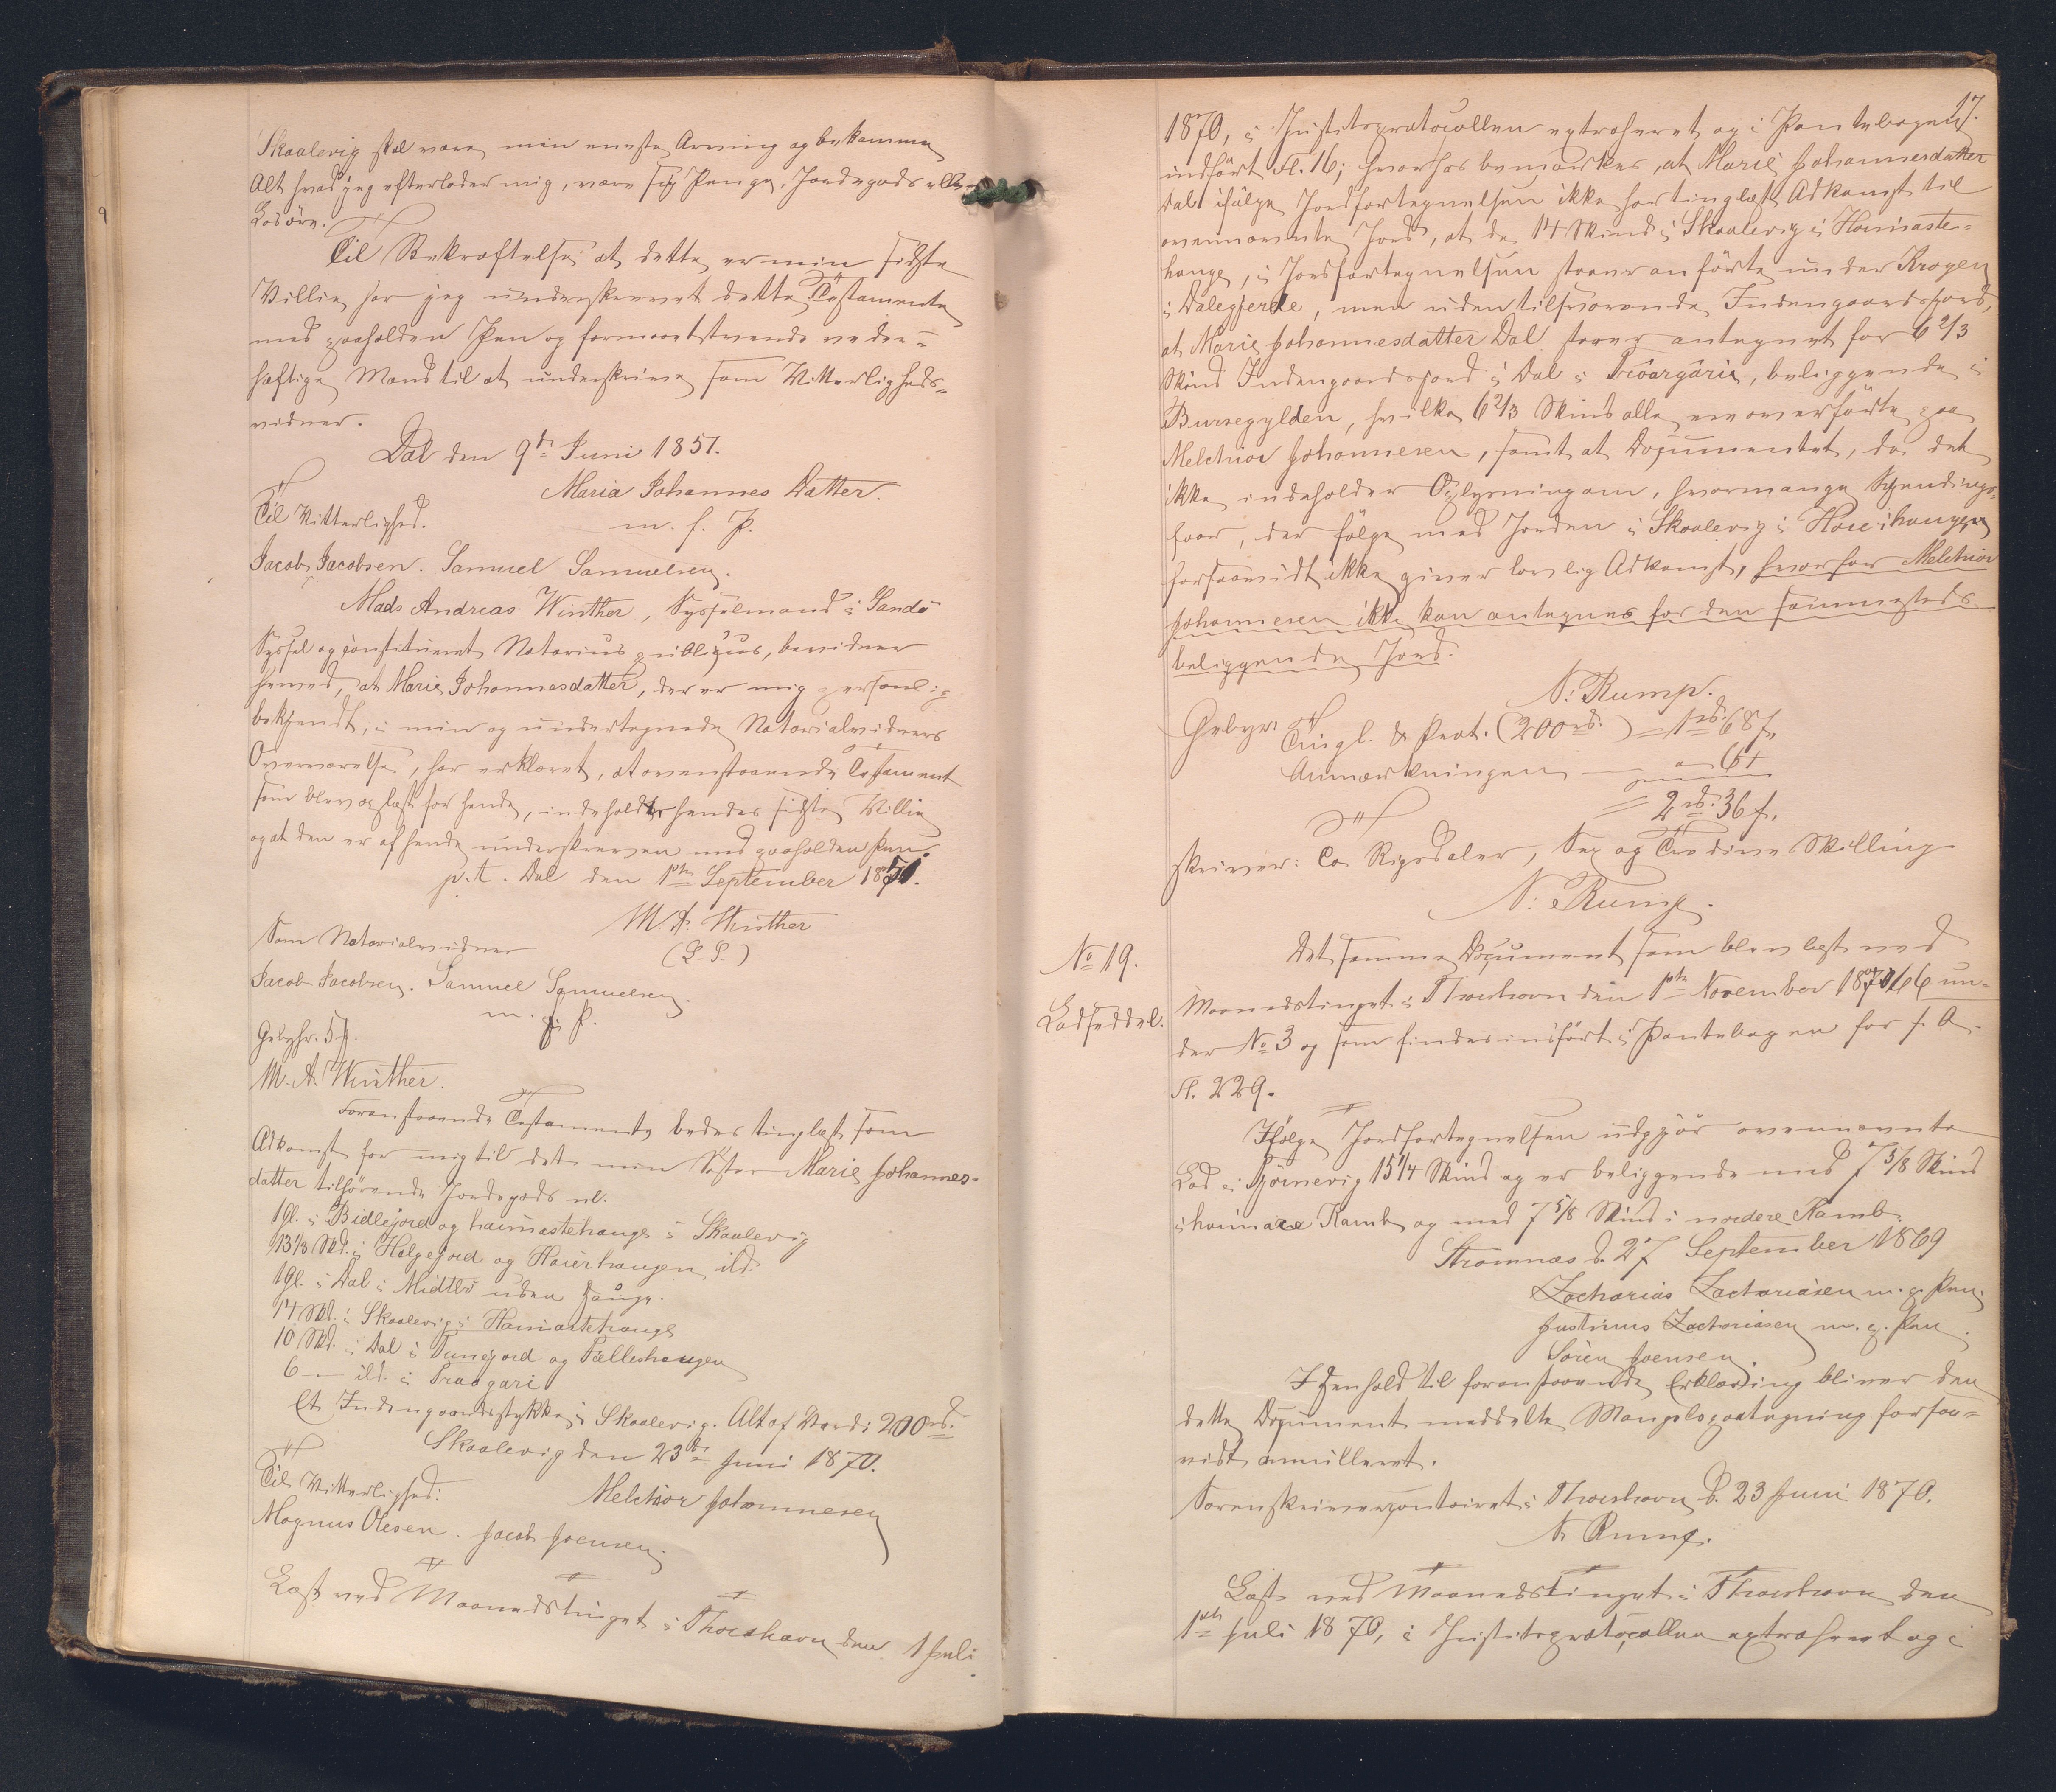 Skaalevig skal være min eneste Arving og bekomme
Alt hvad jeg efterlader mig, være sig Penge, Jordegods eller
Losöre.
Til Bekræftelse at dette er min sidste
Villie har jeg underskrevet dette Testamente
med paaholden Pen og formaaetstvende veder-
hæftige Mænd til at underskrive som Vitterligheds-
vidner.
Dal den 9de Juni 1851.
Maria Johannes Datter.
Til Vitterlighed.
m. f. P.
Jacob Jacobsen. Samuel Samuelsen.
Mads Andreas Winther, Sysselmand i Sandö
Syssel og constitueret Notarius publicus, bevidner
herved, at Marie Johannesdatter, der er mig personlig
bekjendt, i min og undertegnede Notarialvidners
Overværelse, har erklæret, at ovenstaaende Testament
som blev oplæst for hende, indeholder hendes sidste Villie
og at den er af hende underskreven med paaholden Pen.
p. t. Dal den 1ste September 1851.
M. A. Winther
(L. S.)
Som Notarialvidner
Jacob Jacobsen. Samuel Samuelsen.
m. f. P.
Gebyhr. 5
M. A. Winther.
Foranstaaende Testamente bedes tinglæst som
Adkomst for mig til det min Söster Marie Johannes-
datter tilhörende Jordegods nl.
1 Gl. i Bidlejord og haimastehauge i Skaalevig
13 1/3 Skd. i Helgejord og Haierhaugen ibd.
1 Gl. i Dal i Midtlö uden Hauge.
14 Skd. i Skaalevig i Haimastehauge
10 Skd. i Dal i Tunejord og Pælleshaugen
6 — ibd. i Traagari
Et Indengaardsstykke i Skaalevig. Alt af Værdi 200 rd.
Skaalevig den 23de Juni 1870.
Til Vitterlighed:
Melchior Johannesen
Magnus Olesen. Jacob Joensen.
Læst ved Maanedstinget i Thorshavn den 1 Juli
17.
1870, i Justitsprotocollen extraheret og i Pantebogen
indført Fl. 16; hvorhos bemærkes, at Marie Johannesdatter
Dal ifölge Jordfortegnelsen ikke har tinglæst Adkomst til
ovennævnte Jord, at de 14 Skind i Skaalevig i Haimaste-
hauge, i Jordfortegnelsen staaer anförte under Krogen
i Dalegjerde, men uden tilsvarende Indengaardsjord,
at Marie Johannesdatter Dal staaer antegnet for 6 2/3
Skind Indengaardsjord i Dal i Tröargäri, beliggende i
Bursegylden, hvilke 6 2/3 Skind alle ere overförte paa
Melchior Johannesen, samt at Documentet, da det
ikke indeholder Oplysning om, hvormange
faar, der fölge med Jorden i Skaalevig i Haieihaugen
forsaavidt ikke giver lovlig Adkomst, hvorfor Melchior
Johannesen ikke kan antegnes for den sammesteds
beliggende Jord.
N. Rump.
Gebyr: Tingl. & Prot. (200 rd.) = 1 rd. 68 f,
Anmærkningen — " 64
= 2 rd. 36 f,
skriver: To Rigsdaler, Sex og Tredive Skilling
N. Rump.
No 19.
Lodseddel.
Det samme Document som blev læst ved
Maanedstinget i Thorshavn den 1ste November 1866 un-
der No 3 og som findes indfört i Pantebogen for f. A.
Fl. 229.
Ifölge Jordfortegnelsen udgjör ovennævnte
Lod i Tjörnevig 15 1/4 Skind og er beliggende med 7 5/8 Skind
i haimare Kamb og med 7 5/8 Skind i nordere Kamb.
Strömnæs d. 27 September 1869
Zacharias Zachariasen m. p. Pen.
Justinus Zachariasen m. p. Pen.
Sören Joensen.
I Henhold til foranstaaende Erklæring bliver den
dette Document meddelte Mangelspaategning forsaa-
vidt annulleret.
Sorenskrivercontoiret i Thorshavn d. 23 Juni 1870.
N. Rump.
Læst ved Maanedstinget i Thorshavn den
1ste Juli 1870, i Justitsprotocollen extraheret og i